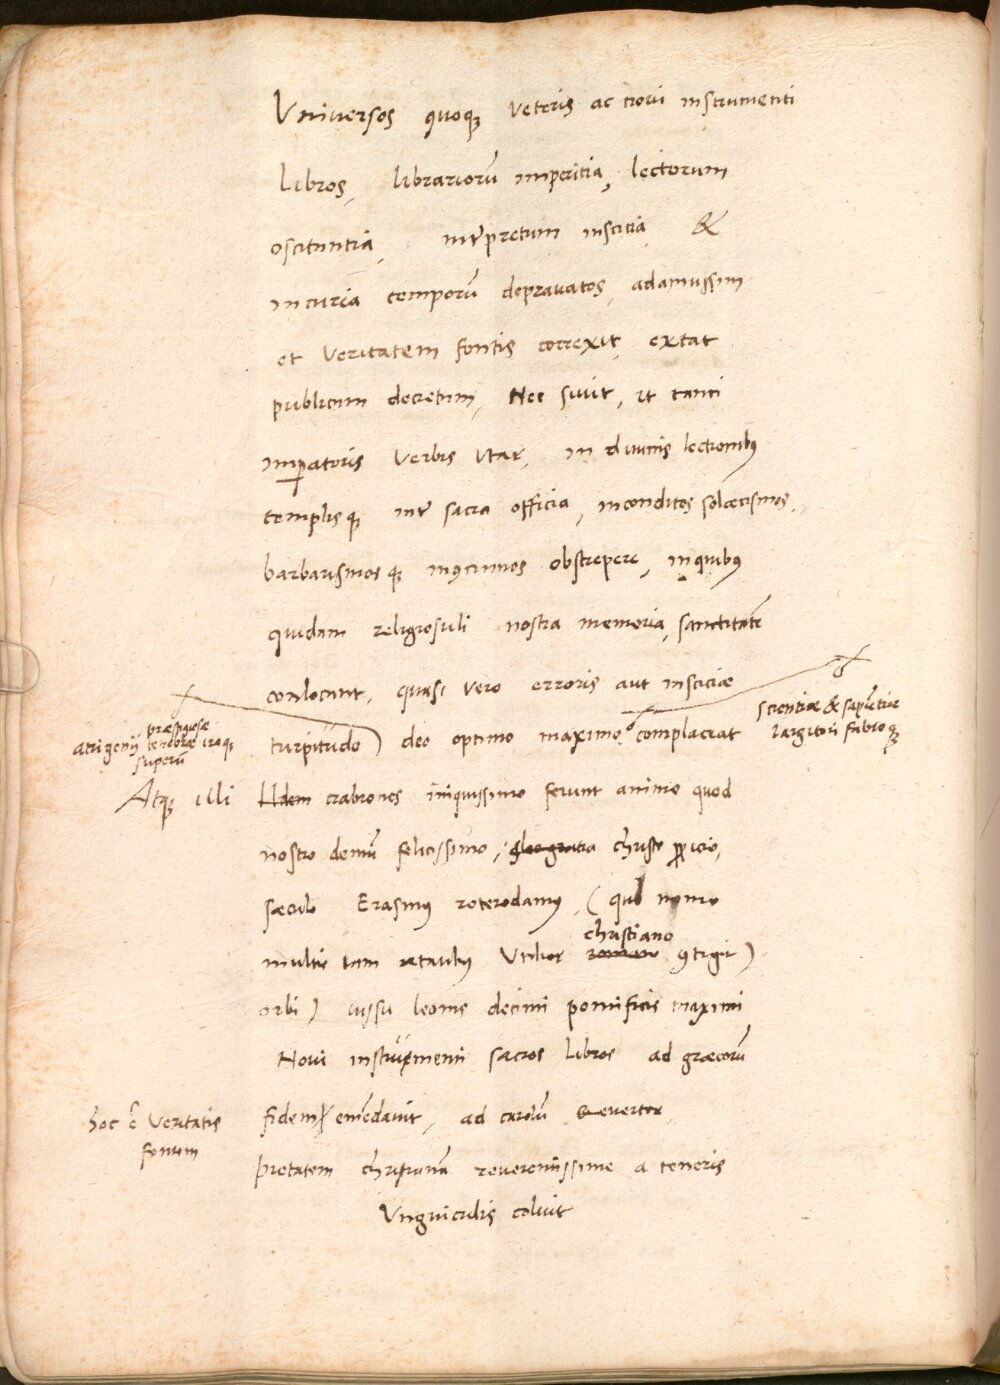 Vniuersos quoqꝫ veteris ac noui instrumenti
Libros, librariorū imperitia, lectorum
oscitantia, interpretum inscitia &
incuria temporū deprauatos, adamussim
et veritatem fontis correxit, extat
publicum decretum, Nec siuit, vt tanti
impatoris verbis vtar, in diuinis lectionibꝰ
templisqꝫ inter sacra officia, inconditos solœcismos,
barbarismosqꝫ obstrepere, in quibus
quidam religiosuli nostra memoria, sanctitatē
conlocant, quasi vero erroris aut insciciæ
turpitudo) deo optimo maximo complaceat
scientiæ & sapiētiæ
largitori fabroqꝫ
atrigenij
tenebræ
superū
Atqꝫ illi Iidem crabrones iniquissimo ferunt animo quod
nostro demū felicissimo, christo ꝓpicio,
sæculo Erasmus roterodamus, (quo nemo
multis iam ætatibus vtilior christiano ꝯtigit)
orbi) iussu leonis decimi pontificis maximi
Noui instrumenti sacros libros ad græcorū
hoc ē veritatis
fontium
fidem emēdauit, ad carolū reuertor
pietatem christianā reuerentissime a teneris
vnguiculis coluit